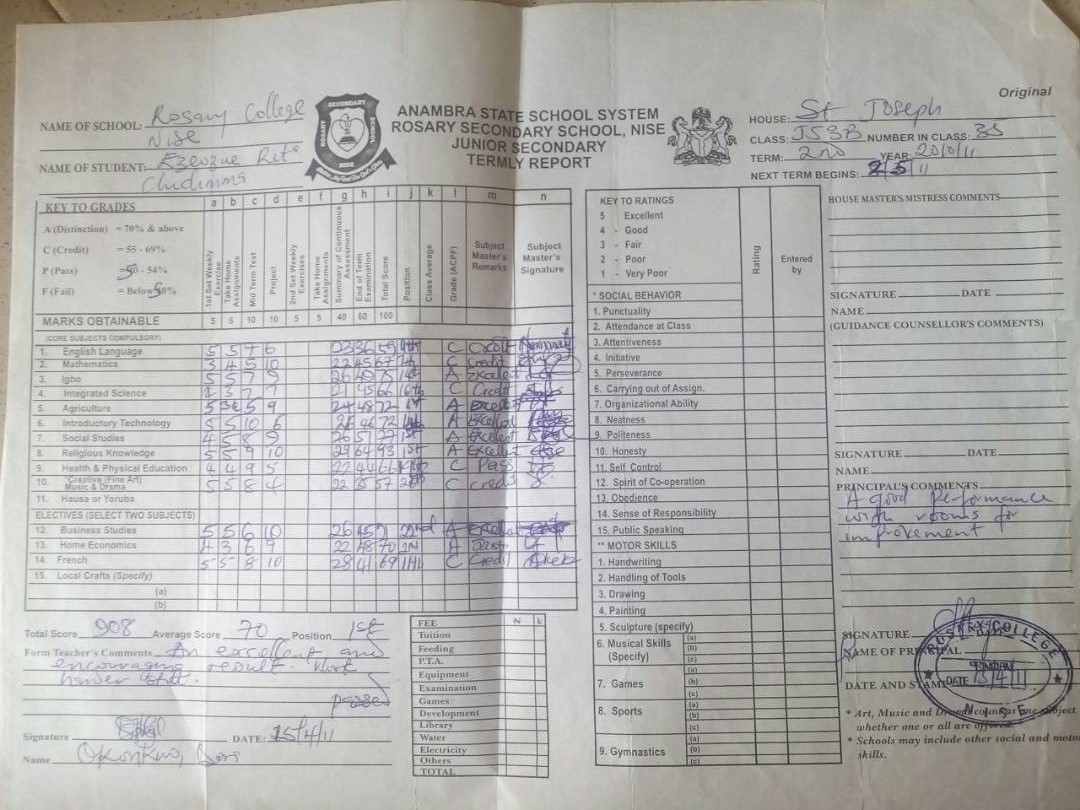 Original
NAME OF SCHOOL: Rosary College
Nise
NAME OF STUDENT: Ezeozue Rita
Chidimma
SECONDARY
ROSARY
SCHOOL
ANAMBRA STATE SCHOOL SYSTEM
ROSARY SECONDARY SCHOOL, NISE
JUNIOR SECONDARY
TERMLY REPORT
HOUSE: St Joseph
CLASS: JS3B NUMBER IN CLASS: 35
TERM: 2nd YEAR: 2010/11
NEXT TERM BEGINS: 2/5/11
KEY TO GRADES
A (Distinction) = 70% & above
C (Credit) = 55 - 69%
P (Pass) = 50 - 54%
F (Fail) = Below 50%
a b c d e f g h i j k l m n
1st Set Weekly Exercise
Take Home Assignments
Mid Term Test
Project
2nd Set Weekly Exercises
Take Home Assignments
Summary of Continuous Assessment
End of Term Examination
Total Score
Position
Class Average
Grade (ACPF)
Subject Master's Remarks
Subject Master's Signature
MARKS OBTAINABLE 5 5 10 10 5 5 40 60 100
(CORE SUBJECTS COMPULSORY)
1. English Language 5 5 7 6 23 36 59 C
2. Mathematics 3 4 5 10 22 45 67 C Credit
3. Igbo 5 5 7 9 26 49 75 A Excellent
4. Integrated Science 4 3 7 7 21 45 66 C Credit
5. Agriculture 5 5 5 9 24 48 72 1st A Excellent
6. Introductory Technology 5 5 10 6 26 46 72 A Excellent
7. Social Studies 4 5 8 9 26 51 77 1st A Excellent
8. Religious Knowledge 5 5 9 10 29 64 93 1st A Excellent
9. Health & Physical Education 4 4 9 5 22 44 66 C Pass
10. *Creative (Fine Art) Music & Drama 5 5 8 4 22 35 57 C Credit
11. Hausa or Yoruba
ELECTIVES (SELECT TWO SUBJECTS)
12. Business Studies 5 5 6 10 26 45 71 2nd A Excellent
13. Home Economics 4 3 6 9 22 48 70 A
14. French 5 5 8 10 28 41 69 C Credit
15. Local Crafts (Specify)
(a)
(b)
Total Score 908 Average Score 70 Position 1st
Form Teacher's Comments An excellent and
encouraging result. Work
harder still.
passed
Signature DATE: 15/4/11
Name Okonkwo,
KEY TO RATINGS
5 Excellent
4 - Good
3 - Fair
2 - Poor
1 - Very Poor
Rating
Entered by
* SOCIAL BEHAVIOR
1. Punctuality
2. Attendance at Class
3. Attentiveness
4. Initiative
5. Perseverance
6. Carrying out of Assign.
7. Organizational Ability
8. Neatness
9. Politeness
10. Honesty
11. Self Control
12. Spirit of Co-operation
13. Obedience
14. Sense of Responsibility
15. Public Speaking
** MOTOR SKILLS
1. Handwriting
2. Handling of Tools
3. Drawing
4. Painting
5. Sculpture (specify)
6. Musical Skills (Specify) (a)
(b)
(c)
7. Games (a)
(b)
(c)
8. Sports (a)
(b)
(c)
9. Gymnastics (a)
(b)
(c)
FEE N k
Tuition
Feeding
P.T.A.
Equipment
Examination
Games
Development
Library
Water
Electricity
Others
TOTAL
HOUSE MASTER'S MISTRESS COMMENTS
SIGNATURE DATE
NAME
(GUIDANCE COUNSELLOR'S COMMENTS)
SIGNATURE DATE
NAME
PRINCIPAL'S COMMENTS
A good Performance
with rooms for
improvement
SIGNATURE
NAME OF PRINCIPAL
DATE AND STAMP
ROSARY COLLEGE
PRINCIPAL
DATE 15/4/11
NISE
* Art, Music and Drama count as one subject
whether one or all are offered
* Schools may include other social and motor
skills.